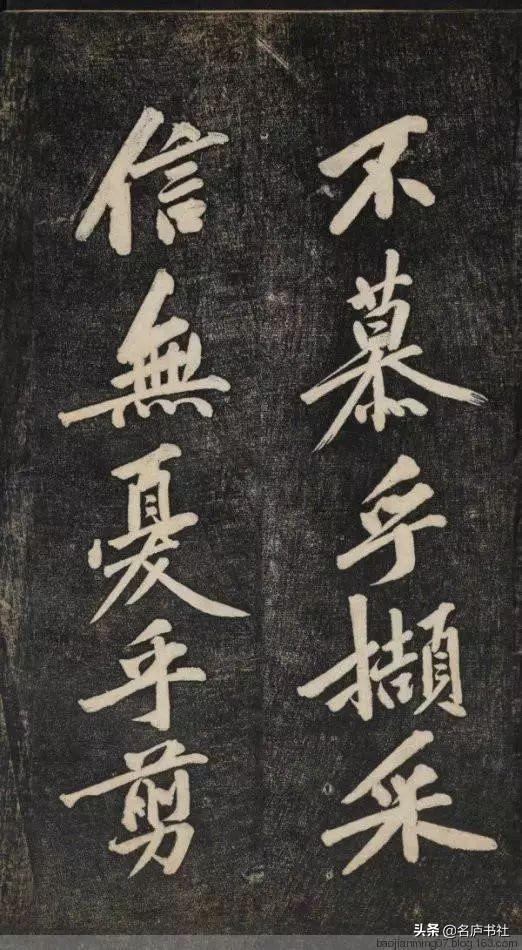 不慕乎擷采
信無憂乎剪
头条 @名庐书社
baojianming07.blog.163.com